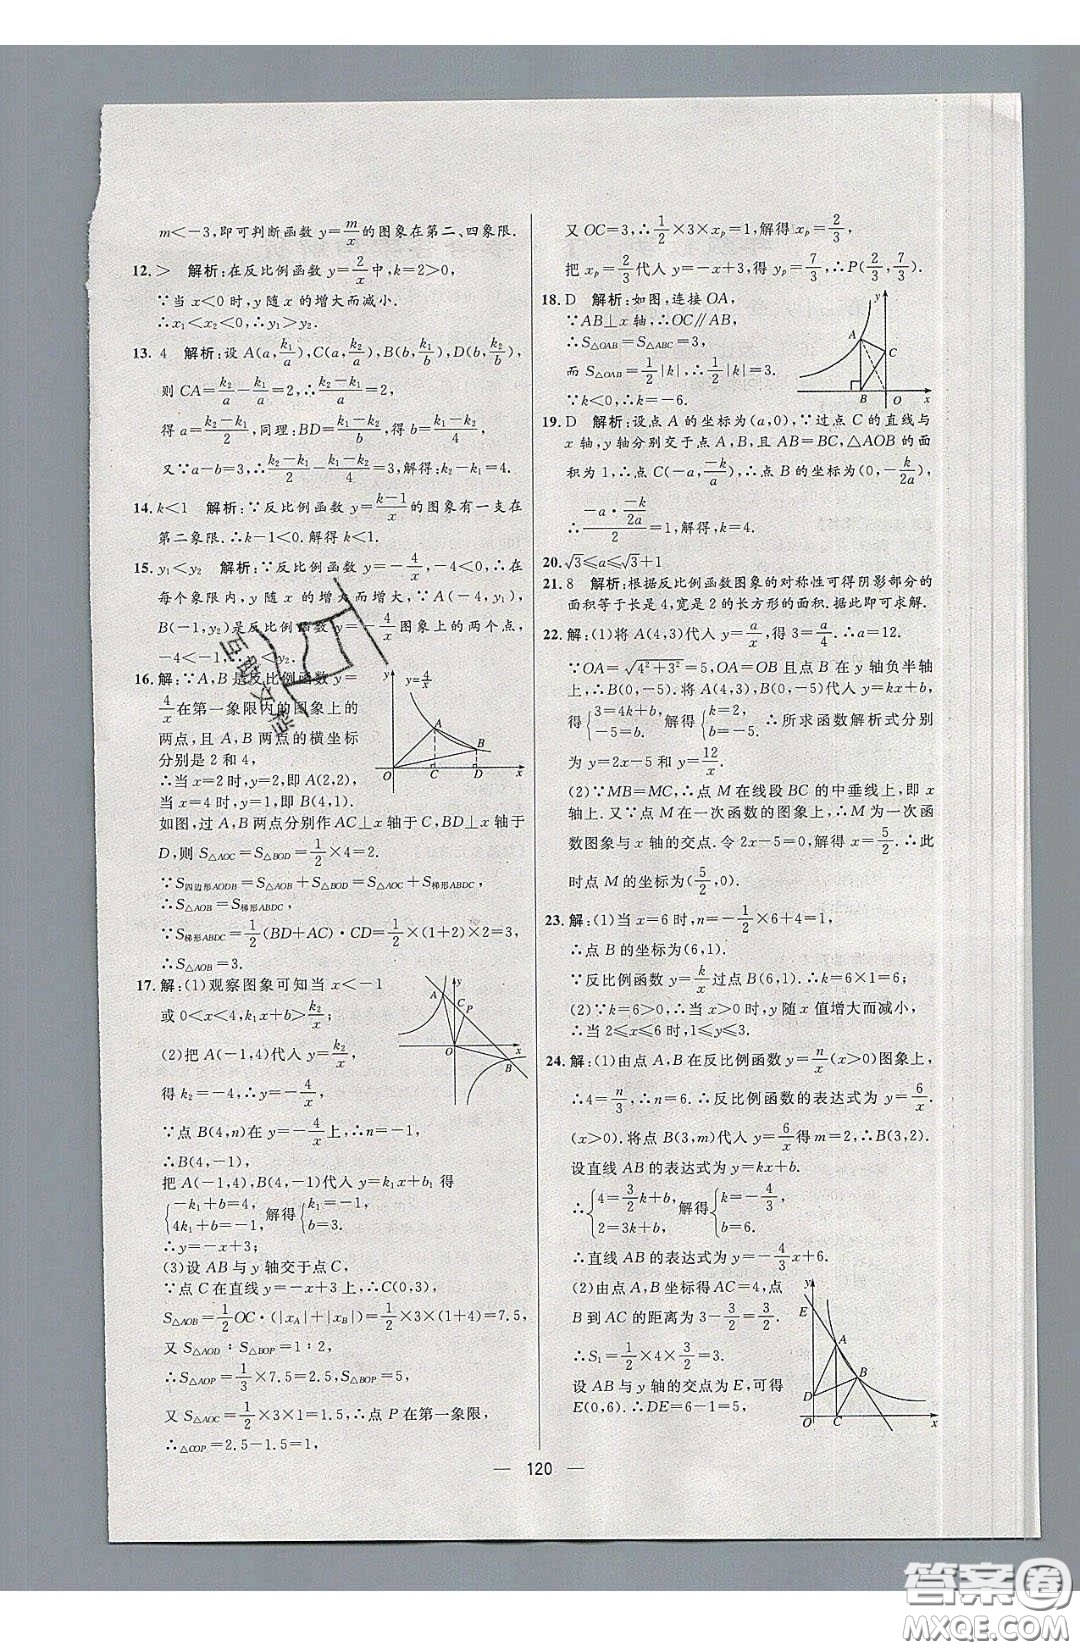 m<-3,即可判断函数 y=m/x 的图象在第二、四象限.
12.> 解析:在反比例函数 y=2/x 中,k=2>0,
∵当 x<0 时,y 随 x 的增大而减小.
∴x₁<x₂<0,∴y₁>y₂.
13. 4 解析:设 A(a,k₁/a),C(a,k₂/a),B(b,k₁/b),D(b,k₂/b),
则 CA=k₂/a-k₁/a=2,∴(k₂-k₁)/a=2,
得 a=(k₂-k₁)/2,同理:BD=(k₁-k₂)/b,得 b=(k₁-k₂)/4,
又∵a-b=3,∴(k₂-k₁)/2-(k₁-k₂)/4=3,解得:k₂-k₁=4.
14.k<1 解析:∵反比例函数 y=(k-1)/x 的图象有一支在
第二象限.∴k-1<0.解得 k<1.
15. y₁<y₂ 解析:∵反比例函数 y=-4/x,-4<0,∴在
每个象限内,y 随 x 的增大而增大,∵A(-4,y₁),
B(-1,y₂)是反比例函数 y=-4/x图象上的两个点,
-4<-1,∴y₁<y₂.
16.解:∵A,B 是反比例函数 y=
4/x在第一象限内的图象上的
两点,且 A,B 两点的横坐标
分别是 2 和 4,
∴当 x=2 时,y=2,即 A(2,2),
当 x=4 时,y=1,即 B(4,1).
如图,过 A,B 两点分别作 AC⊥x 轴于 C,BD⊥x 轴于
D,则 S△AOC=S△BOD=1/2×4=2.
∵S四边形AODB=S△AOB+S△BOD=S△AOC+S梯形ABDC,
∴S△AOB=S梯形ABDC,
∵S梯形ABDC=1/2(BD+AC)·CD=1/2×(1+2)×2=3,
∴S△AOB=3.
y
y=4/x
A
B
O
C
D
x
17.解:(1)观察图象可知当 x<-1
或 0<x<4,k₁x+b>k₂/x;
(2)把 A(-1,4)代入 y=k₂/x,
得 k₂=-4,∴y=-4/x,
∵点 B(4,n)在 y=-4/x上,∴n=-1,
∴B(4,-1),
把 A(-1,4),B(4,-1)代入 y=k₁x+b₁ 得
{-k₁+b=4, 4k₁+b=-1, 解得{k₁=-1, b=3.
∴y=-x+3;
(3)设 AB 与 y 轴交于点 C,
∵点 C 在直线 y=-x+3 上,∴C(0,3),
S△AOB=1/2 OC·(|xA|+|xB|)=1/2×3×(1+4)=7.5,
又 S△AOD:S△BOP=1:2,
∴S△AOP=1/3×7.5=2.5,S△BOP=5,
又 S△AOC=1/2×3×1=1.5,∴点 P 在第一象限,
∴△COP=2.5-1.5=1,
y
A
C
P
O
x
B
又 OC=3,∴1/2×3×xp=1,解得 xp=2/3,
把 xp=2/3代入 y=-x+3,得 yp=7/3,∴P(2/3,7/3).
18. D 解析:如图,连接 OA,
∵AB⊥x 轴,∴OC∥AB,
∴S△OAB=S△ABC=3,
而 S△OAB=1/2|k|,∴1/2|k|=3.
∵k<0,∴k=-6.
y
A
C
B
O
x
19. D 解析:设点 A 的坐标为(a,0),∵过点 C 的直线与
x 轴,y 轴分别交于点 A,B,且 AB=BC,△AOB 的面
积为 1,∴点 C(-a,-k/a)∴点 B 的坐标为(0,-k/2a),
∴(-a·-k/2a)/2=1,解得,k=4.
20.√3≤a≤√3+1
21. 8 解析:根据反比例函数图象的对称性可得阴影部分的
面积等于长是 4,宽是 2 的长方形的面积.据此即可求解.
22.解:(1)将 A(4,3)代入 y=a/x,得 3=a/4.∴a=12.
∵OA=√4²+3²=5,OA=OB 且点 B 在 y 轴负半轴
上.∴B(0,-5).将 A(4,3),B(0,-5)代入 y=kx+b,
得{3=4k+b, -5=b. 解得{k=2, b=-5. ∴所求函数解析式分别
为 y=2x-5 和 y=12/x.
(2)∵MB=MC,∴点 M 在线段 BC 的中垂线上,即 x
轴上.又∵点 M 在一次函数的图象上,∴M 为一次函
数图象与 x 轴的交点.令 2x-5=0,解得 x=5/2.∴此
时点 M 的坐标为(5/2,0).
23.解:(1)当 x=6 时,n=-1/2×6+4=1,
∴点 B 的坐标为(6,1).
∵反比例函数 y=k/x过点 B(6,1),∴k=6×1=6;
(2)∵k=6>0,∴当 x>0 时,y 随 x 值增大而减小,
∴当 2≤x≤6 时,1≤y≤3.
24.解:(1)由点 A,B 在反比例函数 y=n/x(x>0)图象上,
∴4=n/(3/2),∴n=6.∴反比例函数的表达式为 y=6/x
(x>0).将点 B(3,m)代入 y=6/x得 m=2,∴B(3,2).
设直线 AB 的表达式为 y=kx+b.
∴{4=3/2k+b, 2=3k+b, 解得{k=-4/3, b=6.
∴直线 AB 的表达式为 y=-4/3x+6.
(2)由点 A,B 坐标得 AC=4,点
B 到 AC 的距离为 3-3/2=3/2.
∴S₁=1/2×4×3/2=3.
设 AB 与 y 轴的交点为 E,可得
E(0,6).∴DE=6-1=5,
y
E
A
B
D
O
C
x
— 120 —
答案圈
MXQE.COM